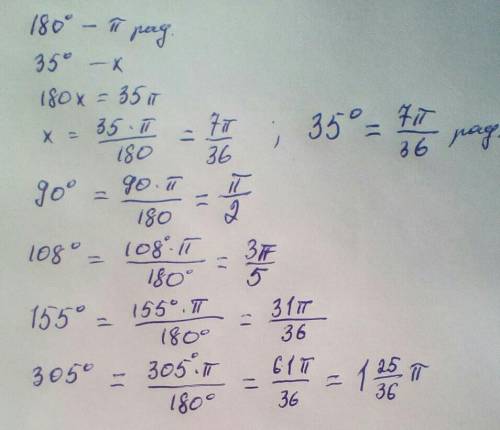 180° – π рад.
35° – x
180x = 35π
x = 35·π/180 = 7π/36 ; 35° = 7π/36 рад.
90° = 90·π/180 = π/2
108° = 108°·π/180° = 3π/5
155° = 155°·π/180° = 31π/36
305° = 305°·π/180° = 61π/36 = 1 25/36 π